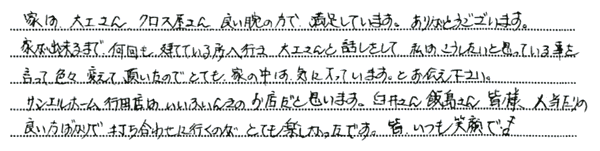 家は、大工さん クロス屋さん 良い腕の方で、満足しています。ありがとうございます。
家が出来るまで、何回も、建てている所へ行き 大工さんと話しをして 私はこうしたいと思っている事を
言って色々変えて頂いたのでとても、家の中は気に入っています。とお伝え下さい。
サンエルホーム行田店はいいふんいきのお店だと思います。白井さん 飯島さん 皆様、人当たりの
良い方ばかりで打ち合わせに行くのが とても楽しかったです。皆、いつも笑顔で♂